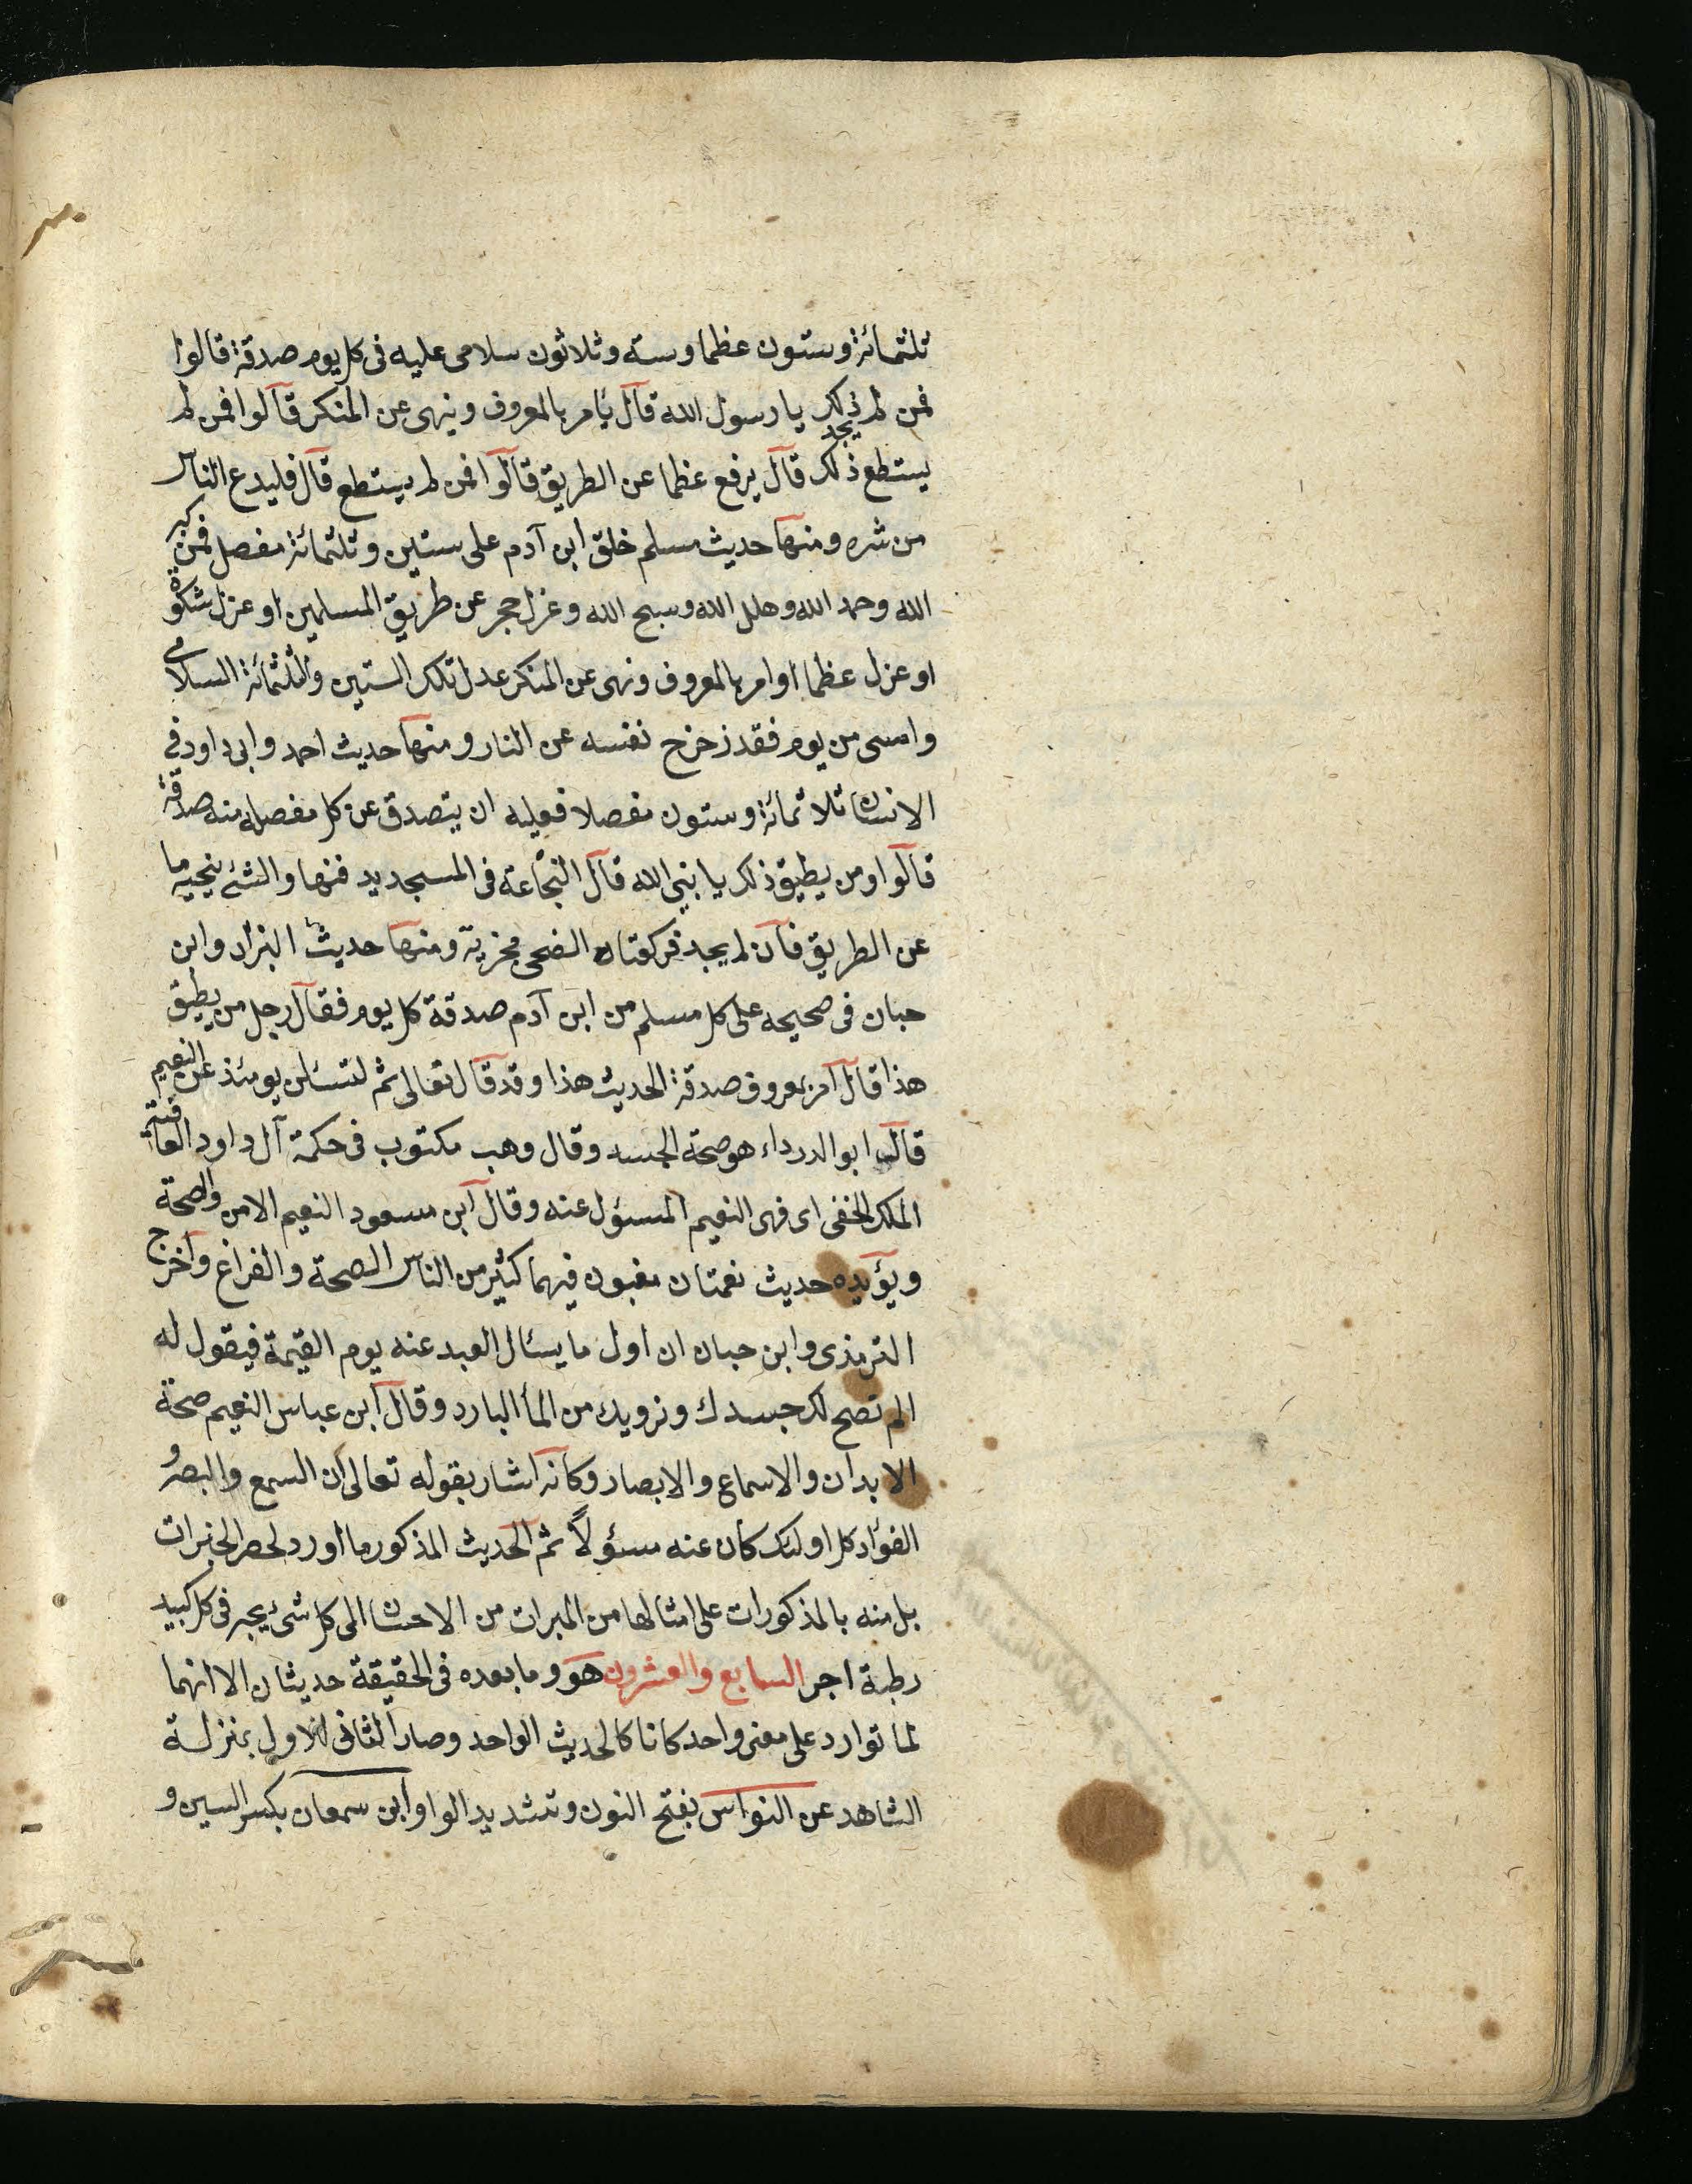 ثلثمائة وستون عظما وستة وثلاثون سلامى عليه فى كل يوم صدقة قالوا
فمن لم يجد ذلك يا رسول الله قال يأمر بالمعروف وينهى عن المنكر قالوا فمن لم
يستطع ذلك قال يرفع عظما عن الطريق قالوا فمن لم يستطع قال فليدع الناس
من شره ومنها حديث مسلم خلق ابن آدم على ستين وثلثمائة مفصل فمن كبر
الله وحمد الله وهلل الله وسبح الله وعزل حجر عن طريق المسلمين او عزل شوكة
او عزل عظما او امر بالمعروف ونهى عن المنكر عدل تلك الستين والثلثمائة السلامى
وامسى من يوم فقد زحزح نفسه عن النار ومنها حديث احمد وابى داود فى
الانسان ثلاثمائة وستون مفصلا فعليه ان يتصدق عن كل مفصل منه صدقة
قالوا ومن يطيق ذلك يا نبى الله قال النخاعة فى المسجد يدفنها والشئ ينحيه ما
عن الطريق فان لم يجد فركعتان الضحى مجزية ومنها حديث البزار وابن
حبان فى صحيحه على كل مسلم من ابن آدم صدقة كل يوم فقال رجل من يطيق
هذا قال امر بمعروف صدقة الحديث هذا وقد قال تعالى ثم لتسئلن يومئذ عن النعيم
قال ابو الدرداء هو صحة الجسد وقال وهب مكتوب فى حكمة آل داود العافية
الملك الخفى اى فهى النعيم المسؤل عنه وقال ابن مسعود النعيم الامن والصحة
ويؤيده حديث نعمتان مغبون فيهما كثير من الناس الصحة والفراغ واخرج
الترمذى وابن حبان ان اول ما يسئال العبد عنه يوم القيمة فيقول له
الم نصح لك جسدك ونرويك من المأ البارد وقال ابن عباس النعيم صحة
الابدان والاسماع والابصار وكانه اشار بقوله تعالى ان السمع والبصر و
الفؤاد كل اولئك كان عنه مسؤلاً ثم الحديث المذكور ما اورد لحصر الخيرات
بل منه بالمذكورات على امثالها من المبرات من الاحسان الى كل شئ يجبر فى كل كبيد
رطبة اجر السابع والعشرون هو وما بعده فى الحقيقة حديثان الا انهما
لما توارد على معنى واحد كانا كالحديث الواحد وصار الثانى للاول بمنزلة
الشاهد عن النواس بفتح النون وتشديد الواو ابن سمعان بكسر السين و